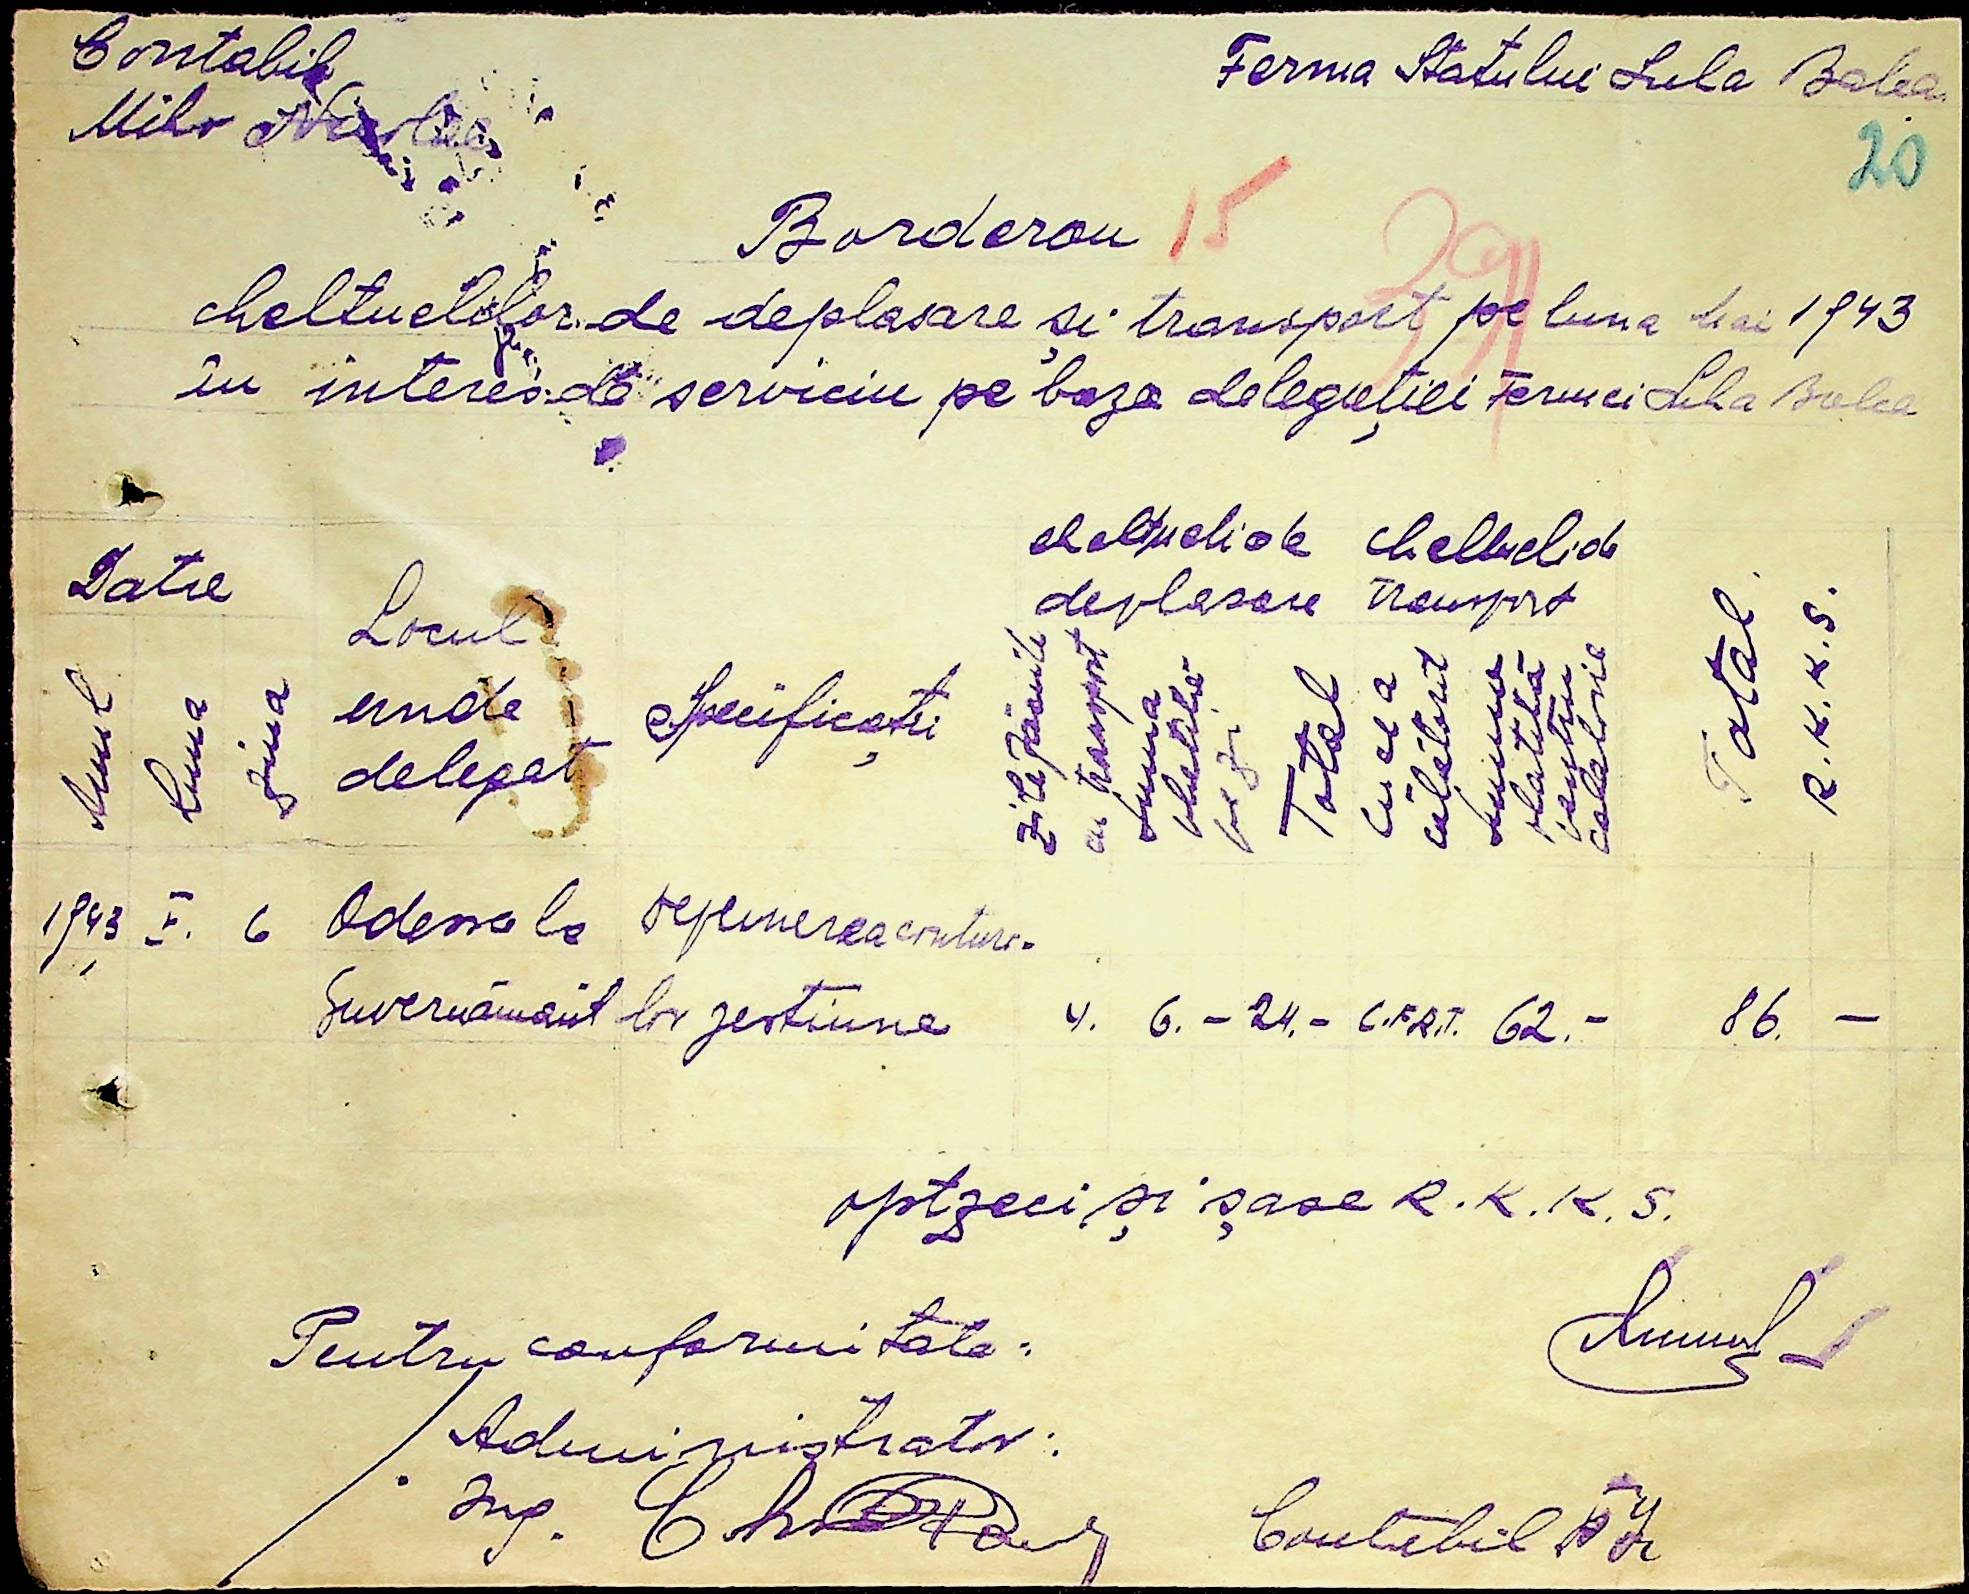 Contabil
Milo Nicolae
Ferma Statului Lula Balca
20
Borderou 15
cheltuelilor de deplasare și transport pe luna Mai 1943
în interes de serviciu pe baza delegației Fermei Lula Balca
Datie
Anul
Luna
Ziua
Locul
unde
delegat
Specificații
cheltueli de
deplasare
Zile
cu transport
suma
pe zi
Total
cheltueli de
transport
Cu ce a
călătorit
suma
plătită
pentru
calatorie
Total
R.K.K.S.
1943 V. 6 Odessa la depunerea conturi-
Guvernământ lor gestiune 4. 6.- 24.- C.F.R.T. 62.- 86. -
optzeci și șase R.K.K.S.
Pentru conformitate:
Administrator:
Ing.
Contabil